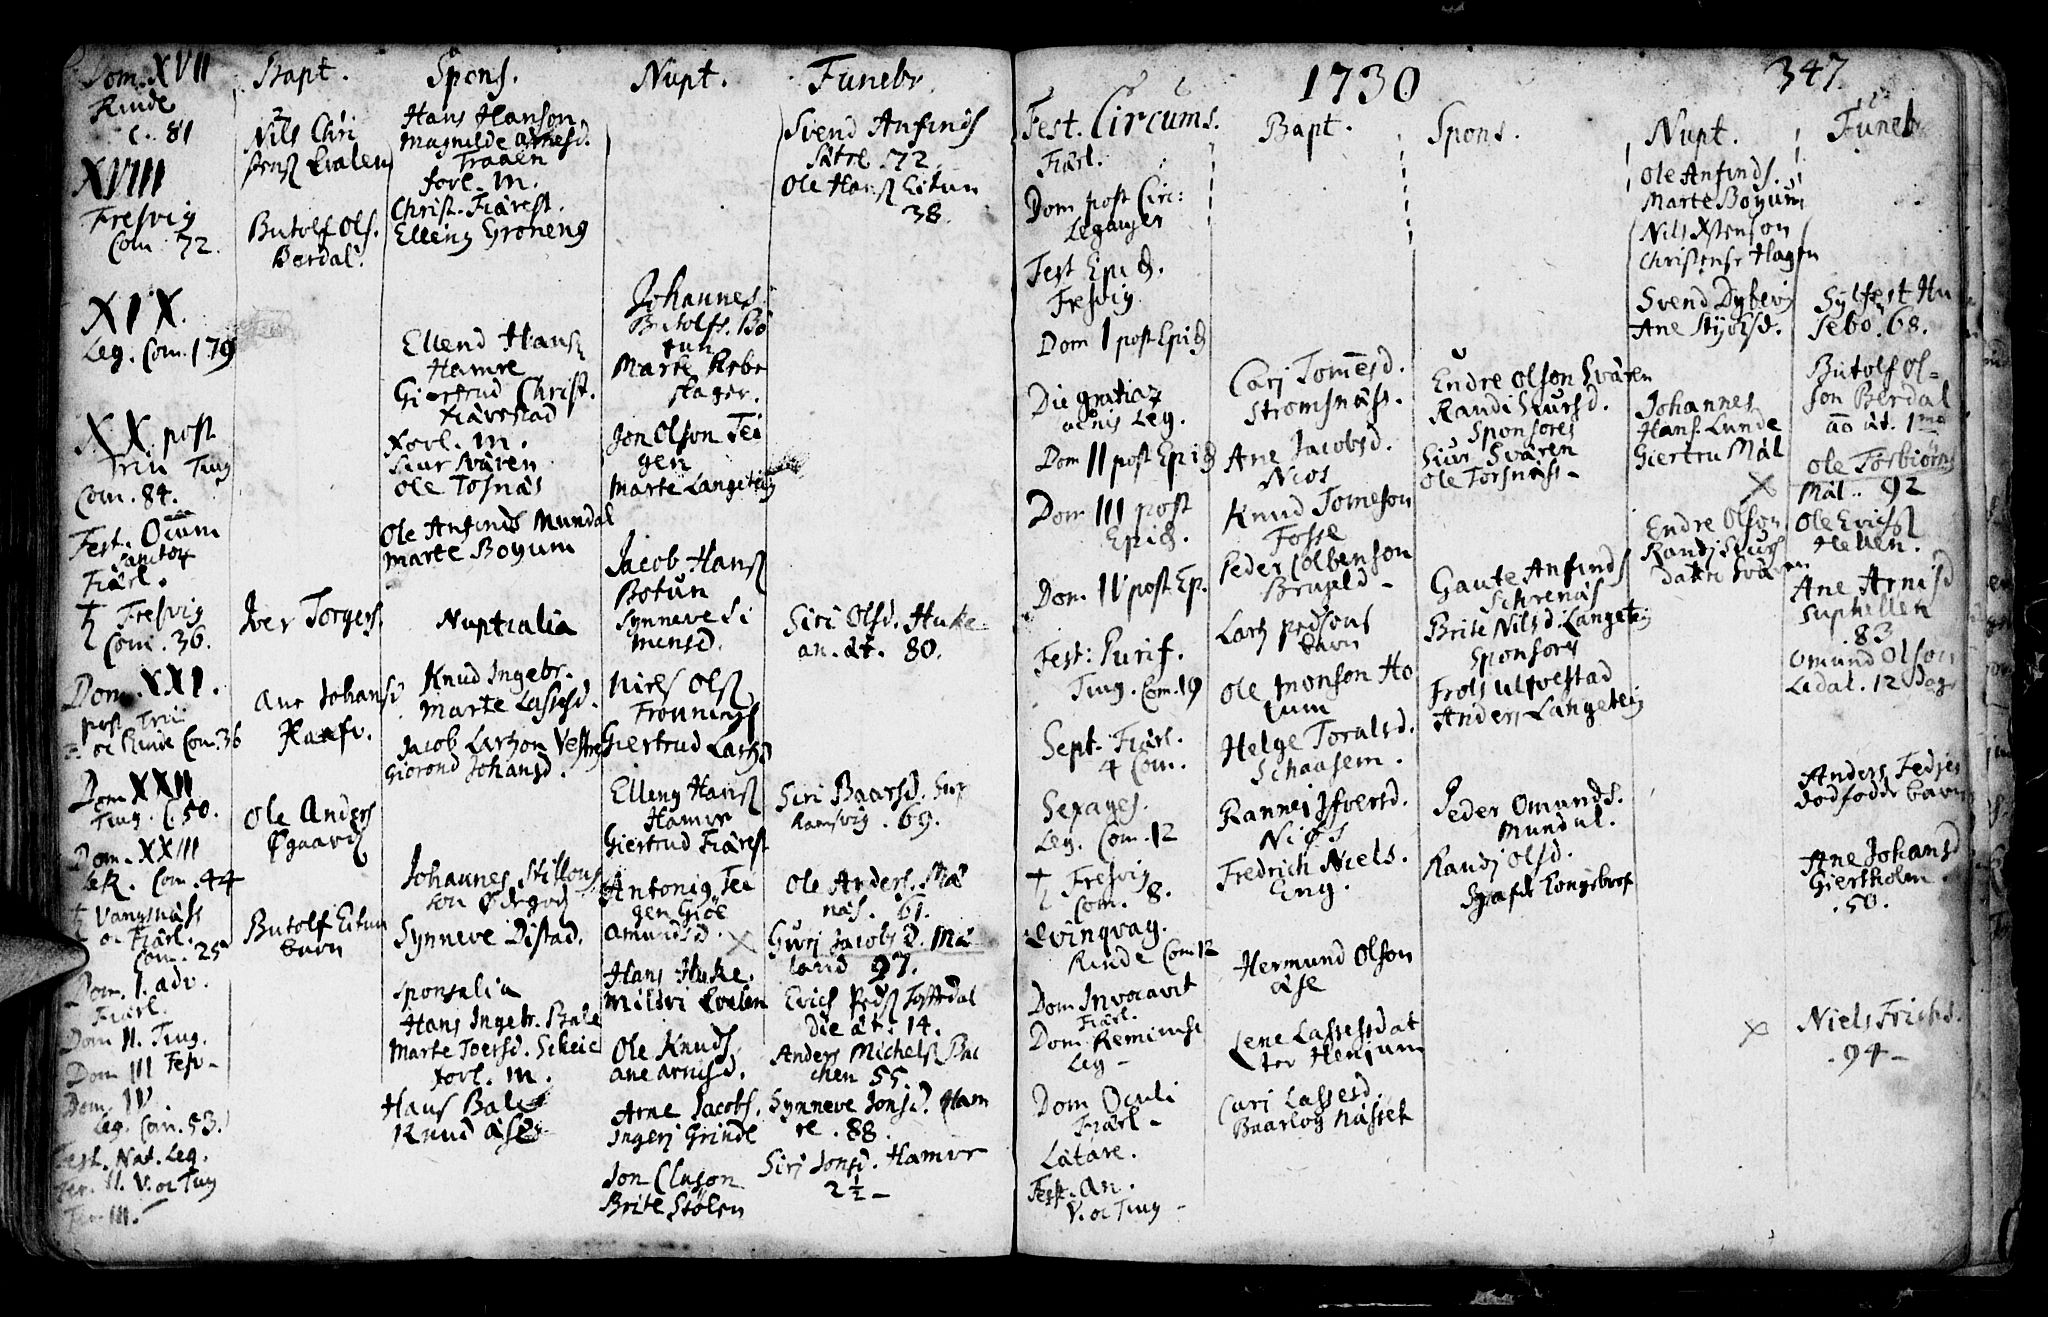 Dom. XVII
Rinde
C. 81
XVIII
Fresvig
Com. 72.
XIX.
Leg. Com. 179
XX. post
Trin Ting
Com. 84.
Fest. Om̄
Sanctor
Fiærl.
Fresvig
Com. 36.
Dom. XXI.
post Trin
oc Rinde Com. 36
Dom XXII
Ting. C. 50.
Dom. XXIII
Com. 44
Vangsnäss
oc Fiärl.
Com. 25
Dom. I. adv.
Fiärl.
Dom II. Ting.
Dom III Fesv-
Dom. IV
Leg. Com. 53.
Fest. Nat. Leg.
Fer. II. V. oc Ting
Fer III.
Bapt.
Nils Chri
stens Evalen
Butolf Ols.
Berdal.
Iver Torgers.
Ane Johansd
Ranfv.
Ole Anders
Øgaard
Butolf Eitun
barn
Spons.
Hans Hanson
Magnilde Arnesd.
Fraaen
forl. M.
Christ. Fiärest.
Elleng Groneng
Ellend Hans
Hamre
Giertrud Christ.
Fiärestad
forl. M.
Siur Svären
Ole Tosnäs
Ole Anfinds Mundal
Marte Boyum
Nuptialia
Knud Ingebr.
Marte Lassesd.
Jacob Larson Vestre
Giorond Johansd.
Johannes Stillous
son Ødegord
Synneve Distad.
Sponsalia
Hans Ingebr. Bale
Marte Toersd. Scheie
forl. M.
Hans Bale
Knud Ase
Nupt.
Johannes
Butolfs. Bö
tun
Marte Rebr
stager.
Jon Olson Tei
gen
Marte Langeteig
Jacob Hans
Botun
Synneve Si
mensd.
Niels Ols
Fronnings
Giertrud Larsd
Elleng Hans
Hamre
Giertrud Fiärest
Antonig Tei
gen Giöe
Amundsd.
Hans Huke.
Mildri Evalen
Ole Knuds.
Ane Arnisd.
Arne Jacobs.
Ingerj Grinde
Jon Cluson
Brite Stölen
Funebr.
Svend Anfinds
Sätre 72.
Ole Hans Eitun
38.
Siri Olsd. Huke
an. ät. 80.
Siri Baarsd. Sup
Ramsvig. 69.
Ole Anders. Mä
näs. 61.
Gurj Jacobsd. Mä
land 97.
Erich Peds Tofftedal
die ät. 14.
Anders Michels Bac
chen 55.
Synneve Jonsd. Ham
re. 88.
Sirj Jonsd. Hamre
2½-
1730
347.
Fest. Circums.
Fiärl.
Dom post Circ:
Leganger
Fest Epiph.
Fresvig.
Dom I post Epiph
Die gratiar
actnis Leg.
Dom II post Epiph
Dom III post
Epiph.
Dom. IV post Ep.
Fest: Purif.
Ting. Com. 19
Sept. Fiärl.
4 Com.
Sexages.
Leg. Com. 12
Fresvig
Com. 8.
Qvinqvag.
Rinde Com 12
Dom Invocavit
Fiärl.
Dom Reminise
Leg-
Dom Oculi
Fiärl-
Lätare.
Fest. An.
V. oc Ting-
Bapt.
Carj Tomēsd.
Stromsnäss.
Ane Jacobsd.
Nios
Knud Tomeson
Fosse
Peder Colbenson
Brufld-
Lars pedsons
barn
Ole Monson Ho
lum
Helge Toralsd.
Schaasem.
Rannej Ifversd.
Niøs
Fredrich Niels.
Eng.
Hermund Olson
Ase
Lene Lassesdat
ter Henjum
Carj Lassesd.
Baarlog Nässet
Spons.
Endre Olson Svären
Randi Siursd.
Sponsores
Siur Svären
Ole Torsnäss-
Gaute Anfinds
Schrenäs
Brite Nilsd. Langeteig
Sponsores
Frois Ulfvestad
Anders Langeteig
Peder Omunds.
Mundal.
Randj Olsd.
Nupt.
Ole Anfinds.
Marte Boyum
Nils Xstenson
Christense Hagen
Svend Dybevig
Ane Styofsd.
Johannes
Hans. Lunde
Giertru Mäl
Endre Olson
Randj Siurs
Datter Svären
Funebr
Sylfest Hu
sebö. 68.
Butolf Ol=
son Berdal
āō ät. 1mo
Ole Torbiörns
Mäl. 92
Ole Erichs
Hellen.
Ane Arnisd
Suphellen
. 83
Omund Olson
Ledal. 12 dage
Anders Fedjes
dodfodde barn
Ane Johansd
Giertholm
. 50.
Niels Frichs.
. 94-